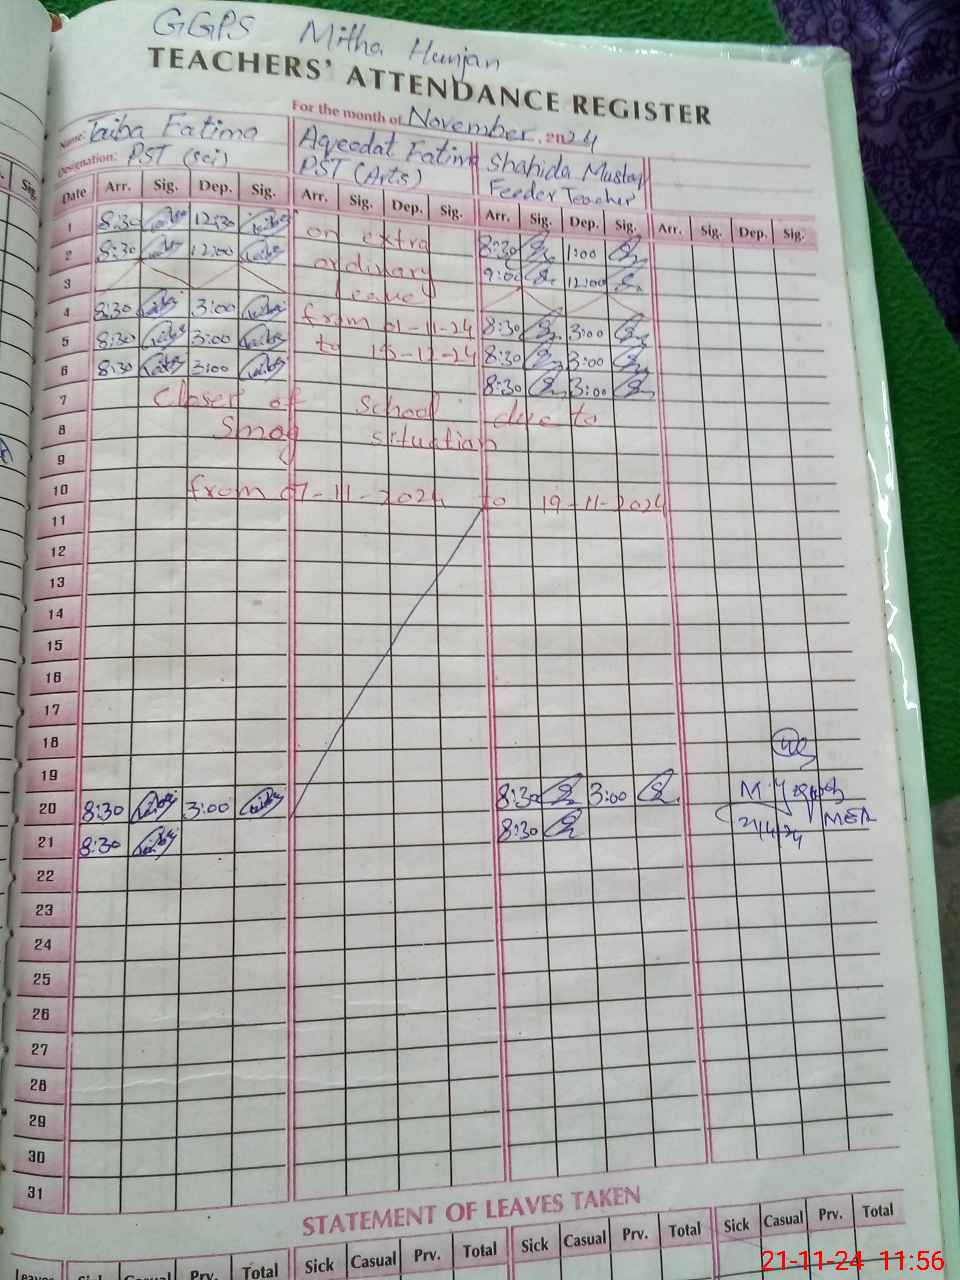 GGPS Mitha Hunjan
TEACHERS' ATTENDANCE REGISTER
For the month of November, 2024
Name: Taiba Fatima Aqeedat Fatima Shahida Mustaf
Designation: PST (sci) PST (Arts) Feeder Teacher
Date Arr. Sig. Dep. Sig. Arr. Sig. Dep. Sig. Arr. Sig. Dep. Sig. Arr. Sig. Dep. Sig.
1 8:30 12:30 on extra 8:30 1:00
2 8:30 12:00 ordinary 9:00 12:00
3 leave
4 8:30 3:00 from 01-11-24 8:30 3:00
5 8:30 3:00 to 15-12-24 8:30 3:00
6 8:30 3:00 8:30 3:00
7 Closer of School due to
8 Smog situation
9
10 from 07-11-2024 to 19-11-2024
11
12
13
14
15
16
17
18
19
20 8:30 3:00 8:30 3:00
21 8:30 8:30 MEA
22
23
24
25
26
27
28
29
30
31
STATEMENT OF LEAVES TAKEN
Leaves Sick Casual Prv. Total Sick Casual Prv. Total Sick Casual Prv. Total Sick Casual Prv. Total
21-11-24 11:56